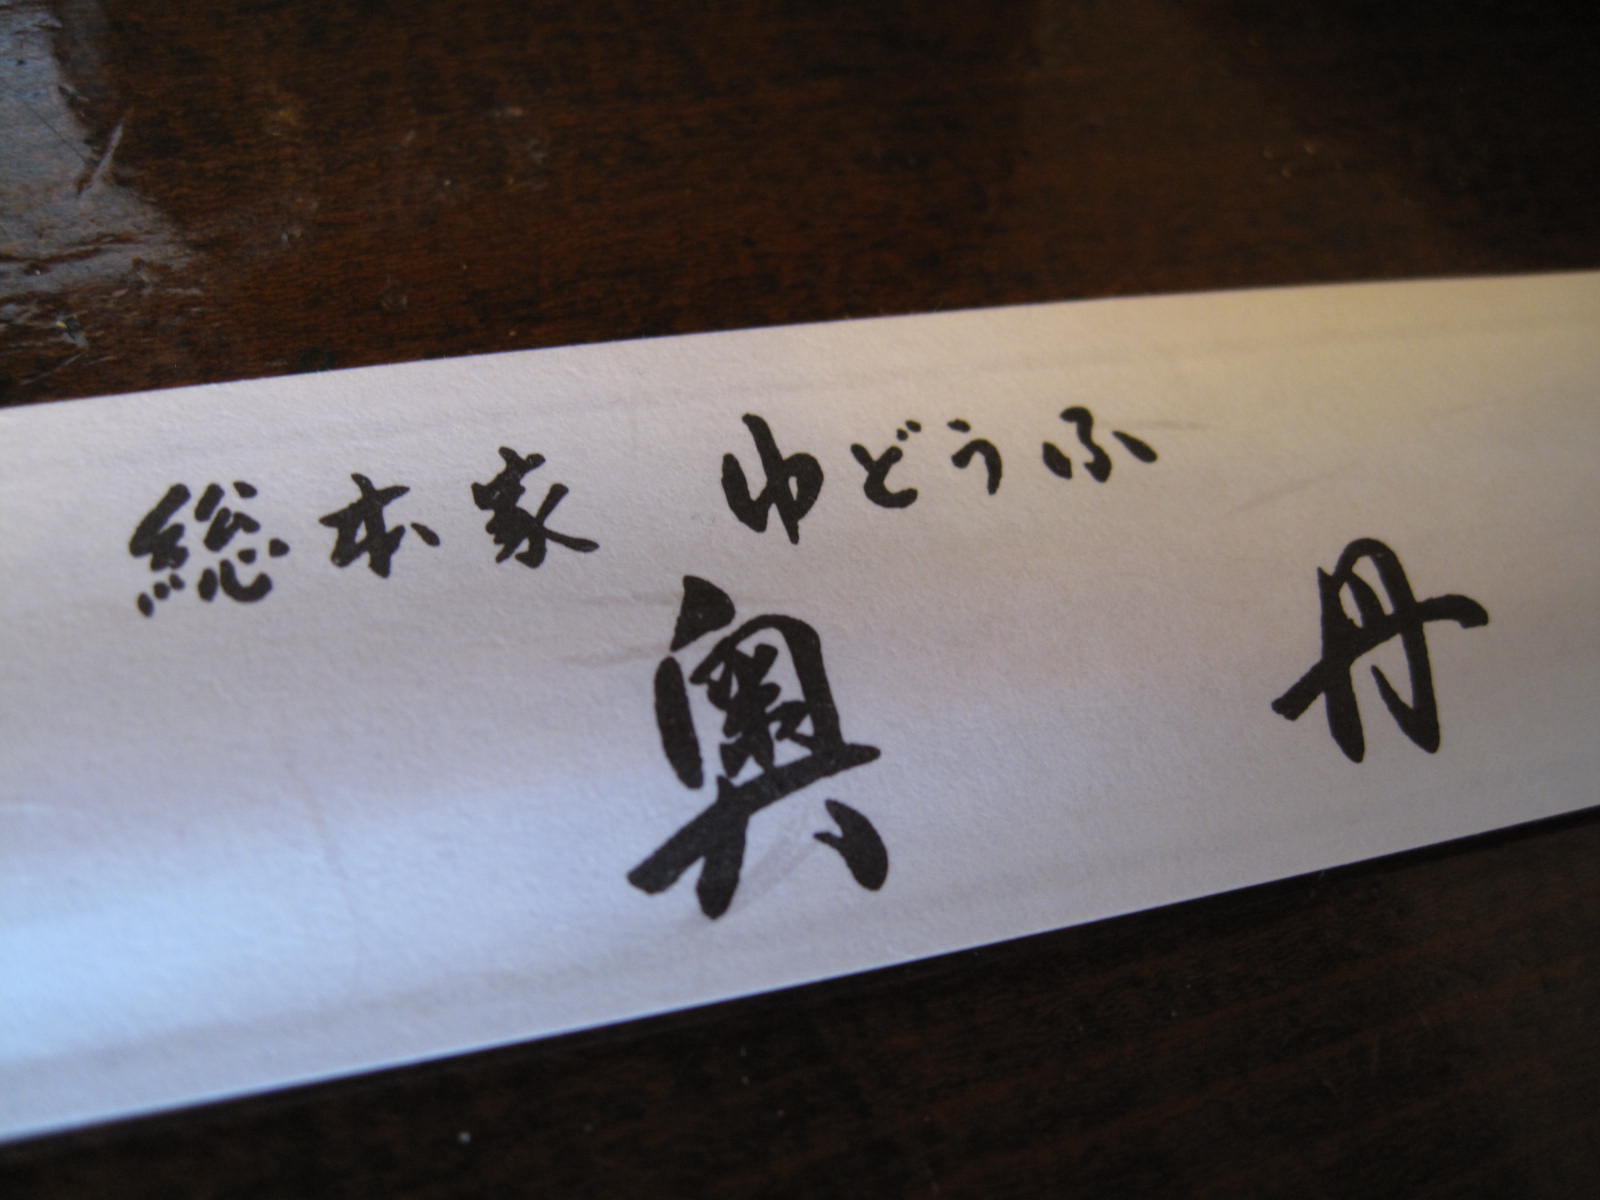 総本家 ゆどうふ
奥 丹